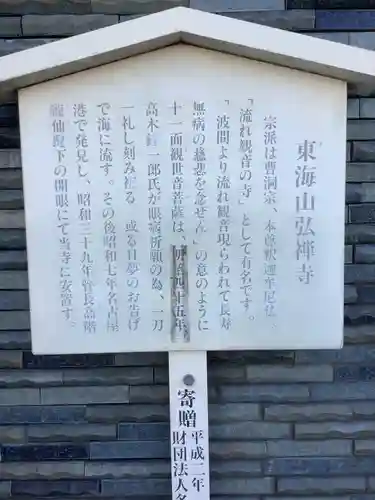 東海山弘禅寺
宗派は曹洞宗、本尊釈迦牟尼仏。
「流れ観音の寺」として有名です。
「波間より流れ観音現らわれて長寿
無病の慈悲を念ぜん」の意のように
十一面観世音菩薩は、明治四十五年、
高木 一郎氏が眼病祈願の為、一刀
一礼し刻み祀る 或る日夢のお告げ
で海に流す。その後昭和七年名古屋
港で発見し、昭和三十九年管長高階
瓏仙猊下の開眼にて当寺に安置す。
寄贈
平成二年
財団法人名